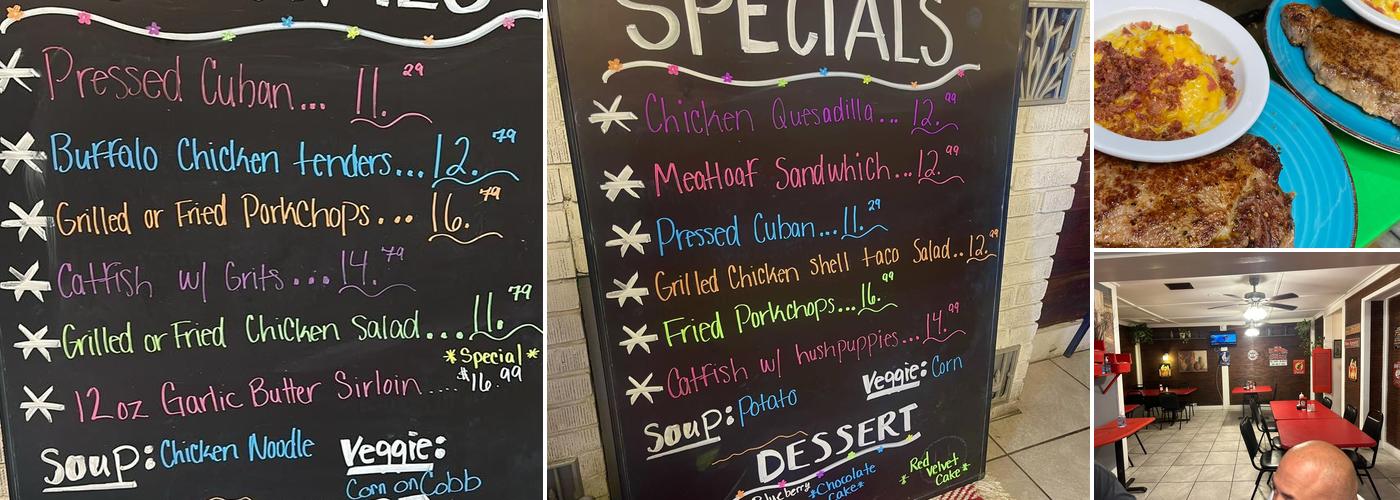 * Pressed Cuban... 11.29
* Buffalo Chicken tenders... 12.79
* Grilled or Fried Porkchops... 16.79
* Catfish w/ Grits... 14.79
* Grilled or Fried Chicken Salad... 11.79
*Special*
$16.99
* 12oz Garlic Butter Sirloin....
Soup: Chicken Noodle
Veggie:
Corn on Cobb
SPECIALS
* Chicken Quesadilla... 12.99
* Meatloaf Sandwhich... 12.99
* Pressed Cuban... 11.29
* Grilled Chicken Shell taco Salad.. 12.99
* Fried Porkchops... 16.99
* Catfish w/ hushpuppies... 14.99
Soup: Potato
Veggie: Corn
DESSERT
Blueberry
*Chocolate
Cake*
*Red
Velvet
Cake*